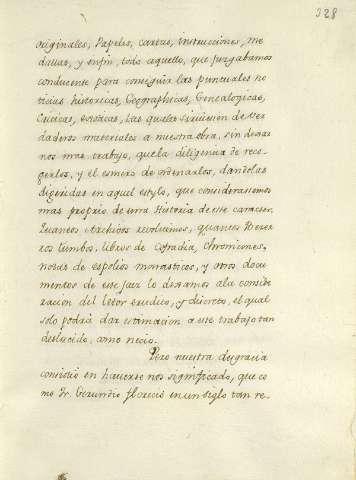 328
originales, Papeles, cartas, instrucciones, me
dallas, y enfin, todo aquello, que juzgabamos
conducente para conseguir las puntuales no
ticias historicas, Geographicas, Genealogicas,
Criticas, exoticas, las quales sirviesen de ver
daderos materiales a nuestra obra, sin dexar
nos mas trabajo, que la diligencia de reco
gerlos, y el esmero de ordenarlos, dandolos
digeridos en aquel estylo, que considerasemos
mas proprio de una Historia de este caracter.
Quantos Archivos revolvimos, quantos
ros tumbos, libros de cofradia, Chronicones,
notas de espolios monasticos, y otros docu
mentos de este jaez lo dexamos a la conside
racion del letor erudito, y discreto, el qual
solo podrà dar estimacion a este trabajo tan
deslucido, como necio.
Pero nuestra desgracia
consistio en haverse nos significado, que co
mo Fr. Gerundio florecio en un siglo tan re-